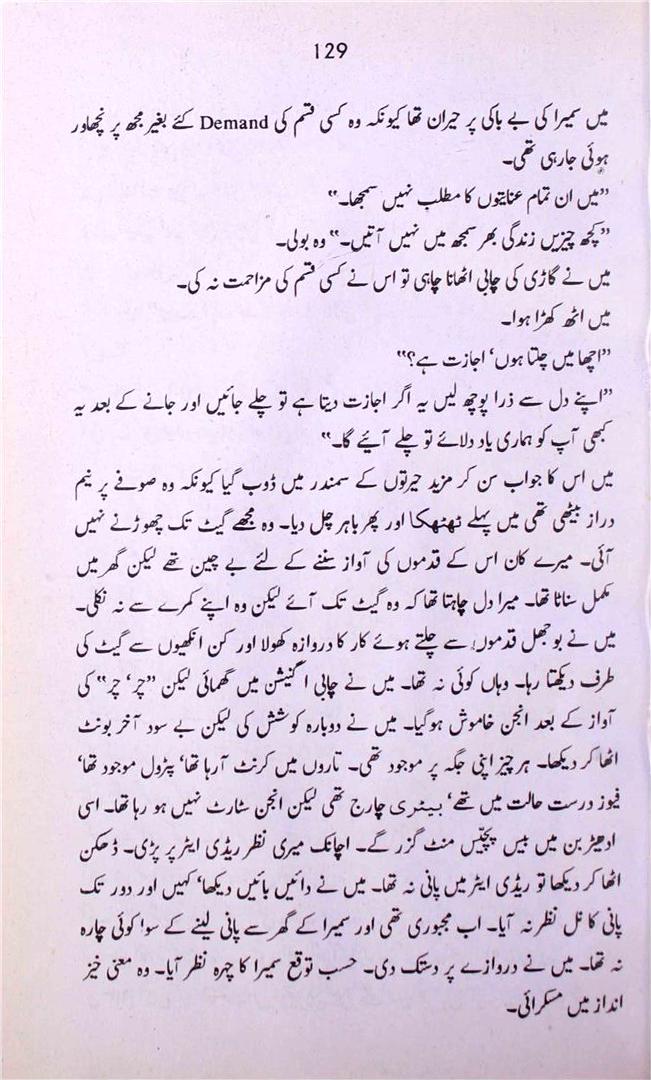 129
میں سمیرا کی بے باکی پر حیران تھا کیونکہ وہ کسی قسم کی Demand کئے بغیر مجھ پر نچھاور
ہوئی جارہی تھی۔
”میں ان تمام عنایتوں کا مطلب نہیں سمجھا۔“
”کچھ چیزیں زندگی بھر سمجھ میں نہیں آتیں۔“ وہ بولی۔
میں نے گاڑی کی چابی اٹھانا چاہی تو اس نے کسی قسم کی مزاحمت نہ کی۔
میں اٹھ کھڑا ہوا۔
”اچھا میں چلتا ہوں‘ اجازت ہے؟“
”اپنے دل سے ذرا پوچھ لیں یہ اگر اجازت دیتا ہے تو چلے جائیں اور جانے کے بعد یہ
کبھی آپ کو ہماری یاد دلائے تو چلے آئیے گا۔“
میں اس کا جواب سن کر مزید حیرتوں کے سمندر میں ڈوب گیا کیونکہ وہ صوفے پر نیم
دراز بیٹھی تھی میں پہلے ٹھٹھکا اور پھر باہر چل دیا۔ وہ مجھے گیٹ تک چھوڑنے نہیں
آئی۔ میرے کان اس کے قدموں کی آواز سننے کے لئے بے چین تھے لیکن گھر میں
مکمل سناٹا تھا۔ میرا دل چاہتا تھا کہ وہ گیٹ تک آئے لیکن وہ اپنے کمرے سے نہ نکلی۔
میں نے بوجھل قدموں سے چلتے ہوئے کار کا دروازہ کھولا اور کن انکھیوں سے گیٹ کی
طرف دیکھتا رہا۔ وہاں کوئی نہ تھا۔ میں نے چابی اگنیشن میں گھمائی لیکن ”چر‘ چر“ کی
آواز کے بعد انجن خاموش ہوگیا۔ میں نے دوبارہ کوشش کی لیکن بے سود آخر بونٹ
اٹھا کر دیکھا۔ ہر چیز اپنی جگہ پر موجود تھی۔ تاروں میں کرنٹ آرہا تھا‘ پٹرول موجود تھا‘
فیوز درست حالت میں تھے‘ بیٹری چارج تھی لیکن انجن سٹارٹ نہیں ہو رہا تھا۔ اسی
ادھیڑ بن میں بیس پچیّس منٹ گزر گے۔ اچانک میری نظر ریڈی ایٹر پر پڑی۔ ڈھکن
اٹھا کر دیکھا تو ریڈی ایٹر میں پانی نہ تھا۔ میں نے دائیں بائیں دیکھا‘ کہیں اور دور تک
پانی کا نل نظر نہ آیا۔ اب مجبوری تھی اور سمیرا کے گھر سے پانی لینے کے سوا کوئی چارہ
نہ تھا۔ میں نے دروازے پر دستک دی۔ حسب توقع سمیرا کا چہرہ نظر آیا۔ وہ معنی خیز
انداز میں مسکرائی۔